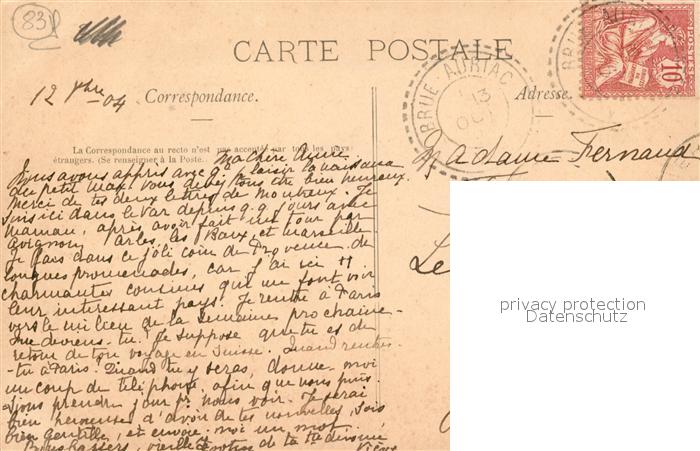 83
CARTE POSTALE
12 Xbre 04
Correspondance.
Adresse.
BRUE AURIAC
13
OCT
POSTES
10
La Correspondance au recto n'est pas acceptée par tous les pays
étrangers. (Se renseigner à la Poste.)
Ma chère
Nous avons appris avec gd plaisir la naissance
du petit Max. Vous devez tous être bien heureux.
Merci de tes deux lettres de Montreux. Je
suis ici dans le Var depuis q.q. jours avec
Maman, après avoir fait un tour par
Avignon, Arles, les Baux, et Marseille
Je fais dans ce joli coin de Provence de
longues promenades, car j'ai ici
charmantes cousines qui me font voir
leur intéressant pays. Je rentre à Paris
vers le milieu de la semaine prochaine.
Que deviens-tu? Je suppose que tu es de
retour de ton voyage en Suisse. Quand rentres-
-tu à Paris. Quand tu y seras, donne-moi
un coup de téléphone, afin que nous puis-
sions prendre jour pr nous voir. Je serai
bien heureuse d'avoir de tes nouvelles, sois
bien gentille, et envoie-moi un mot.
Bons baisers, vieille
Madame Fernand
Le
privacy protection
Datenschutz